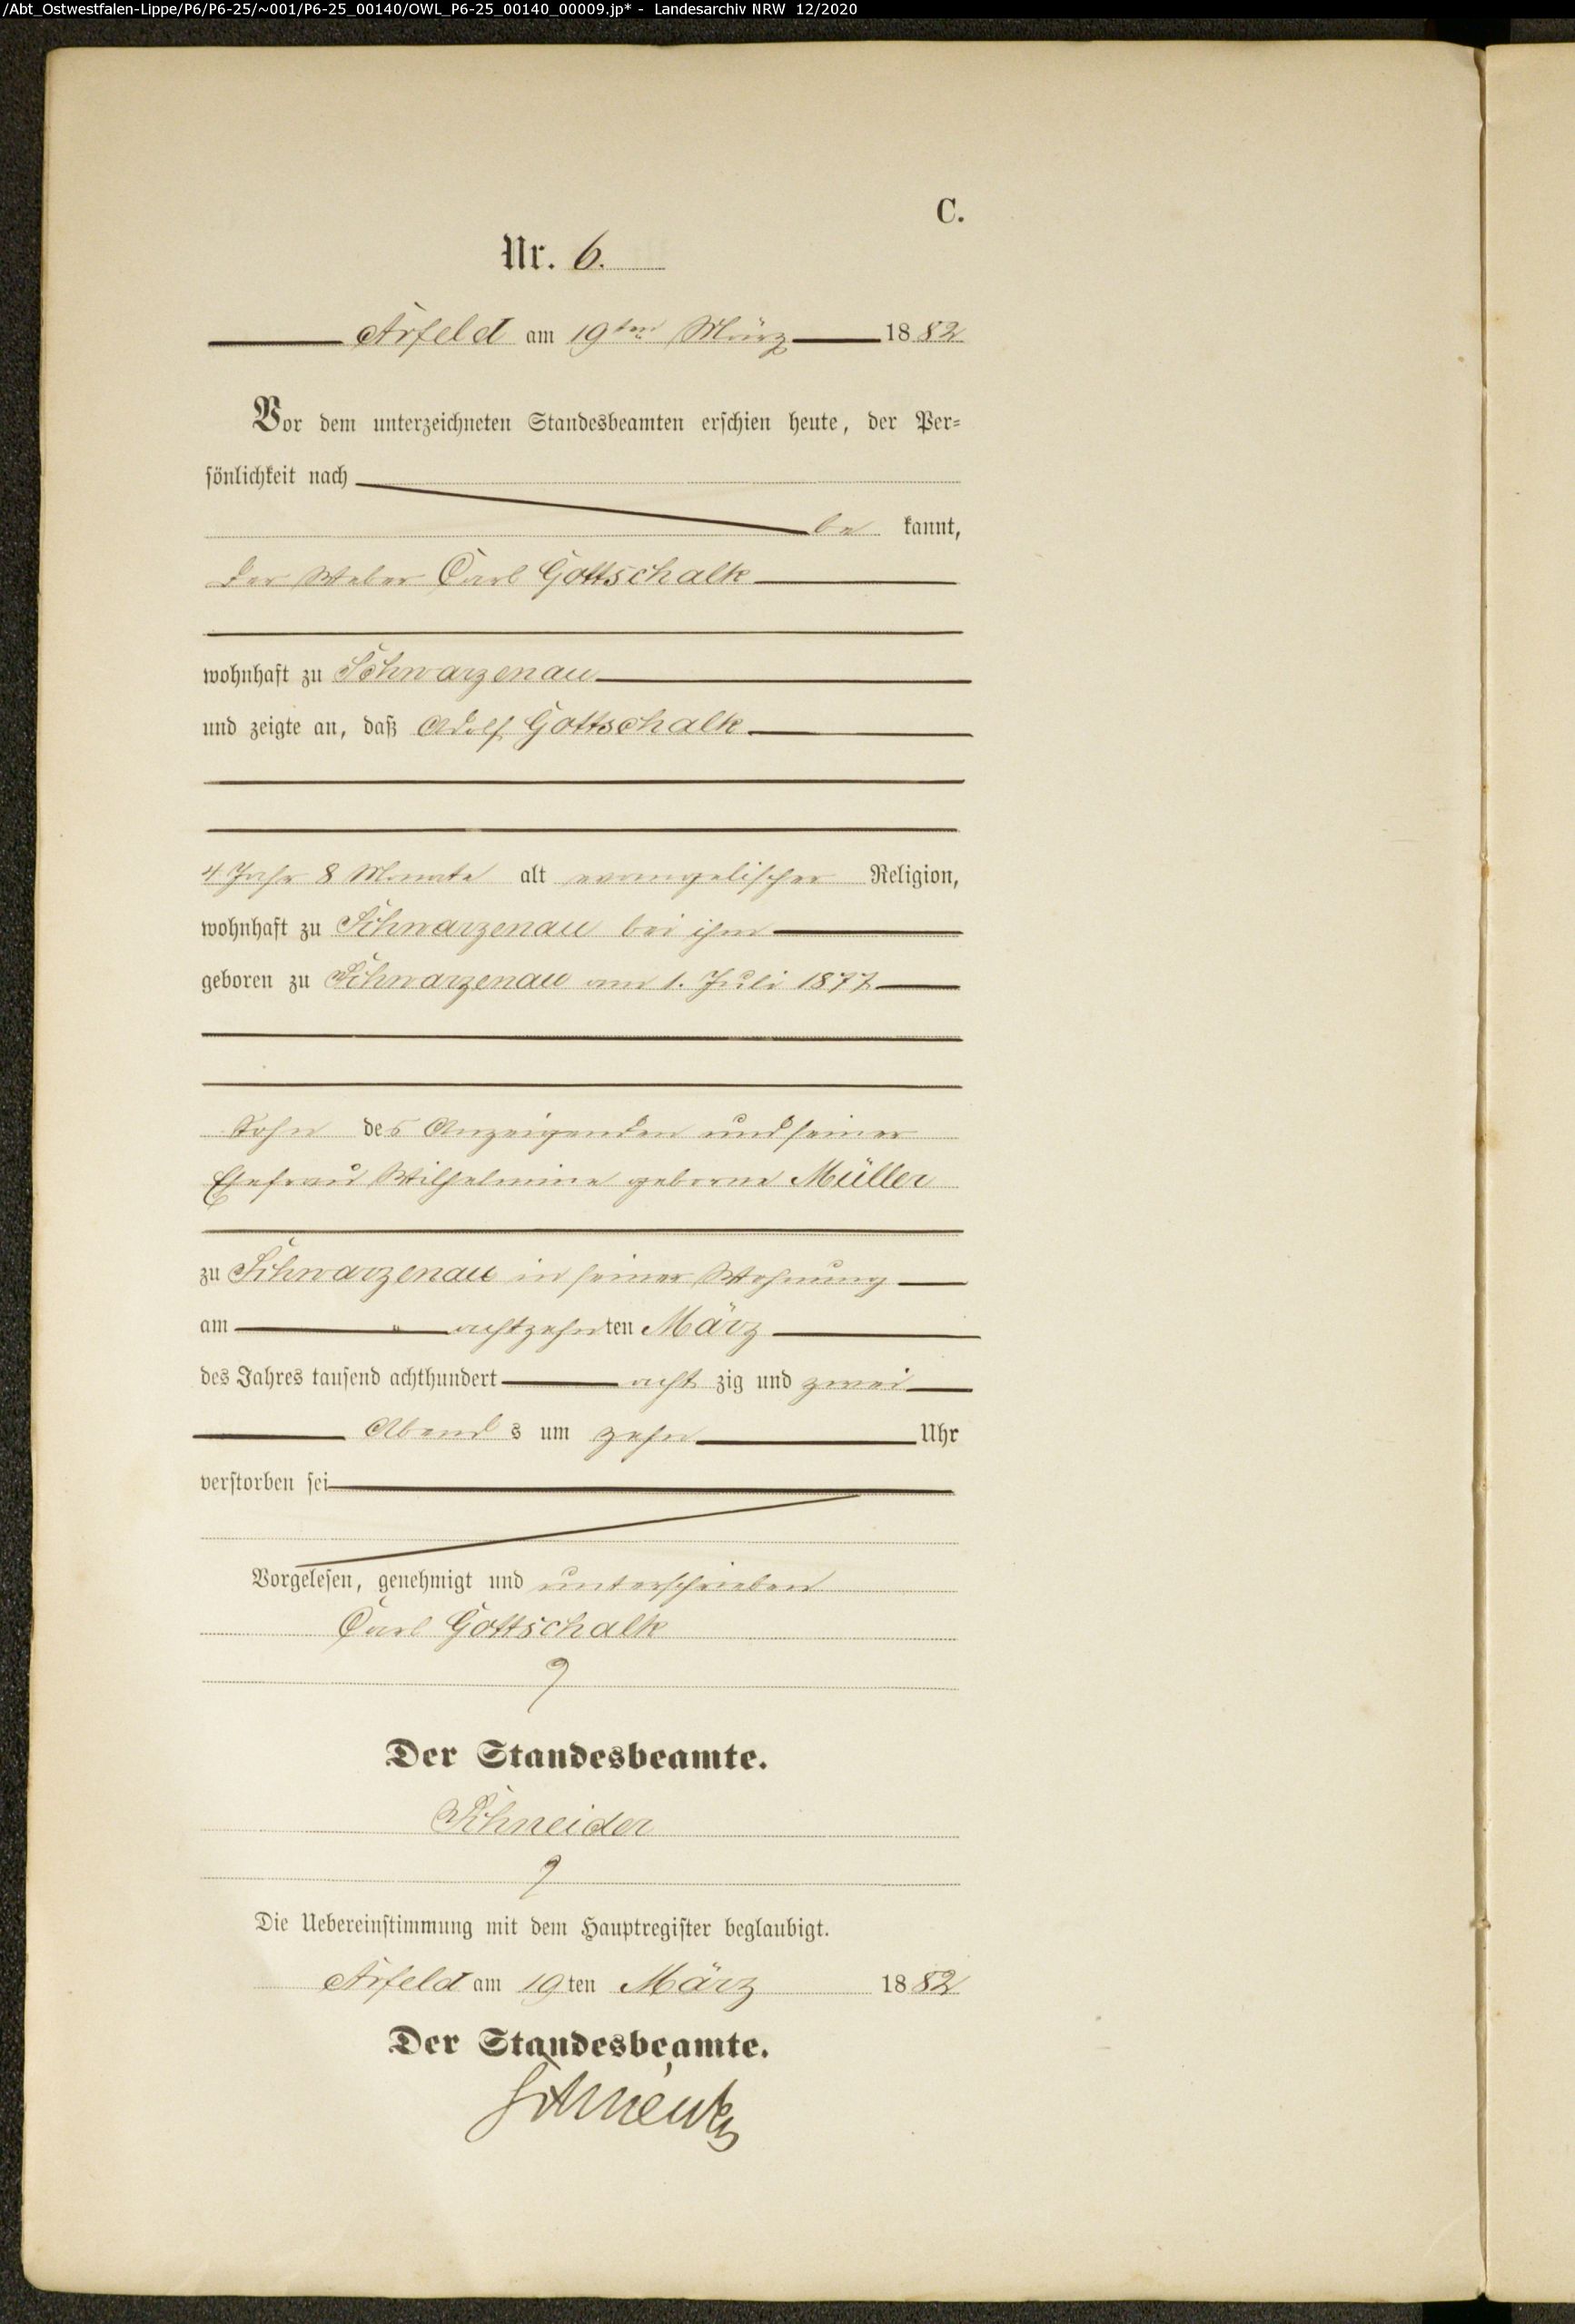 /Abt_Ostwestfalen-Lippe/P6/P6-25/~001/P6-25_00140/OWL_P6-25_00140_00009.jp* - Landesarchiv NRW 12/2020
C.
Nr. 6.
Arfeld am 19ten März 1882
Vor dem unterzeichneten Standesbeamten erschien heute, der Per-
sönlichkeit nach
be kannt,
der Weber Carl Gottschalk
wohnhaft zu Schwarzenau
und zeigte an, daß Adolf Gottschalk
4 Jahr 8 Monate alt evangelischer Religion,
wohnhaft zu Schwarzenau bei ihm
geboren zu Schwarzenau am 1. Juli 1877
Sohn des Anzeigenden und seiner
Ehefrau Wilhelmine geborne Müller
zu Schwarzenau in seiner Wohnung
am achtzehnten März
des Jahres tausend achthundert acht zig und zwei
Abend s um zehn Uhr
verstorben sei
Vorgelesen, genehmigt und unterschrieben
Carl Gottschalk
Der Standesbeamte.
Schneider
Die Uebereinstimmung mit dem Hauptregister beglaubigt.
Arfeld am 19ten März 1882
Der Standesbeamte.
Schneider